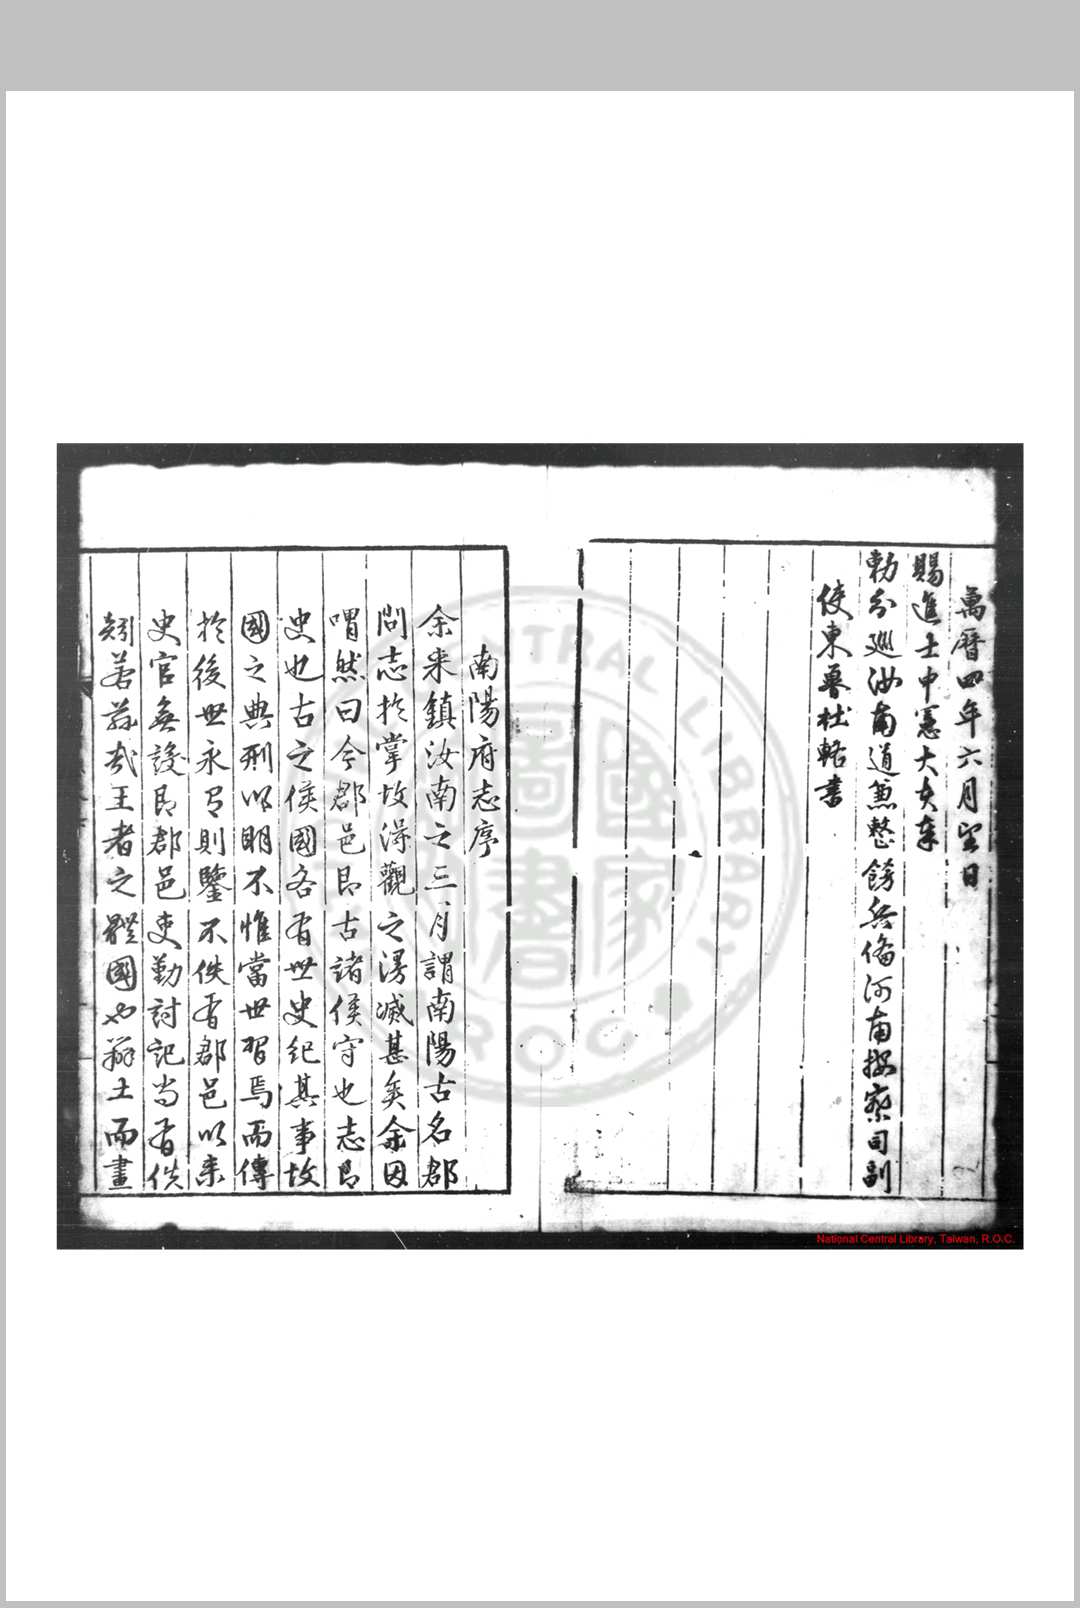 萬曆四年六月望日
賜進士中憲大夫奉
勅分巡汝南道兼整飭兵備河南按察司副
使東魯杜輅書
南陽府志序
余來鎮汝南之三月謂南陽古名郡
問志於掌故得觀之漫滅甚矣余因
喟然曰今郡邑即古諸侯守也志即
史也古之侯國各有世史紀其事故
國之典刑以明不惟當世習焉而傳
於後世永有則鑒不佚者郡邑以來
史官無設即郡邑吏勤討記尚有佚
剏若茲哉王者之體國也辨土而畫
NATIONAL CENTRAL LIBRARY
R.O.C.
國家圖書館
National Central Library, Taiwan, R.O.C.